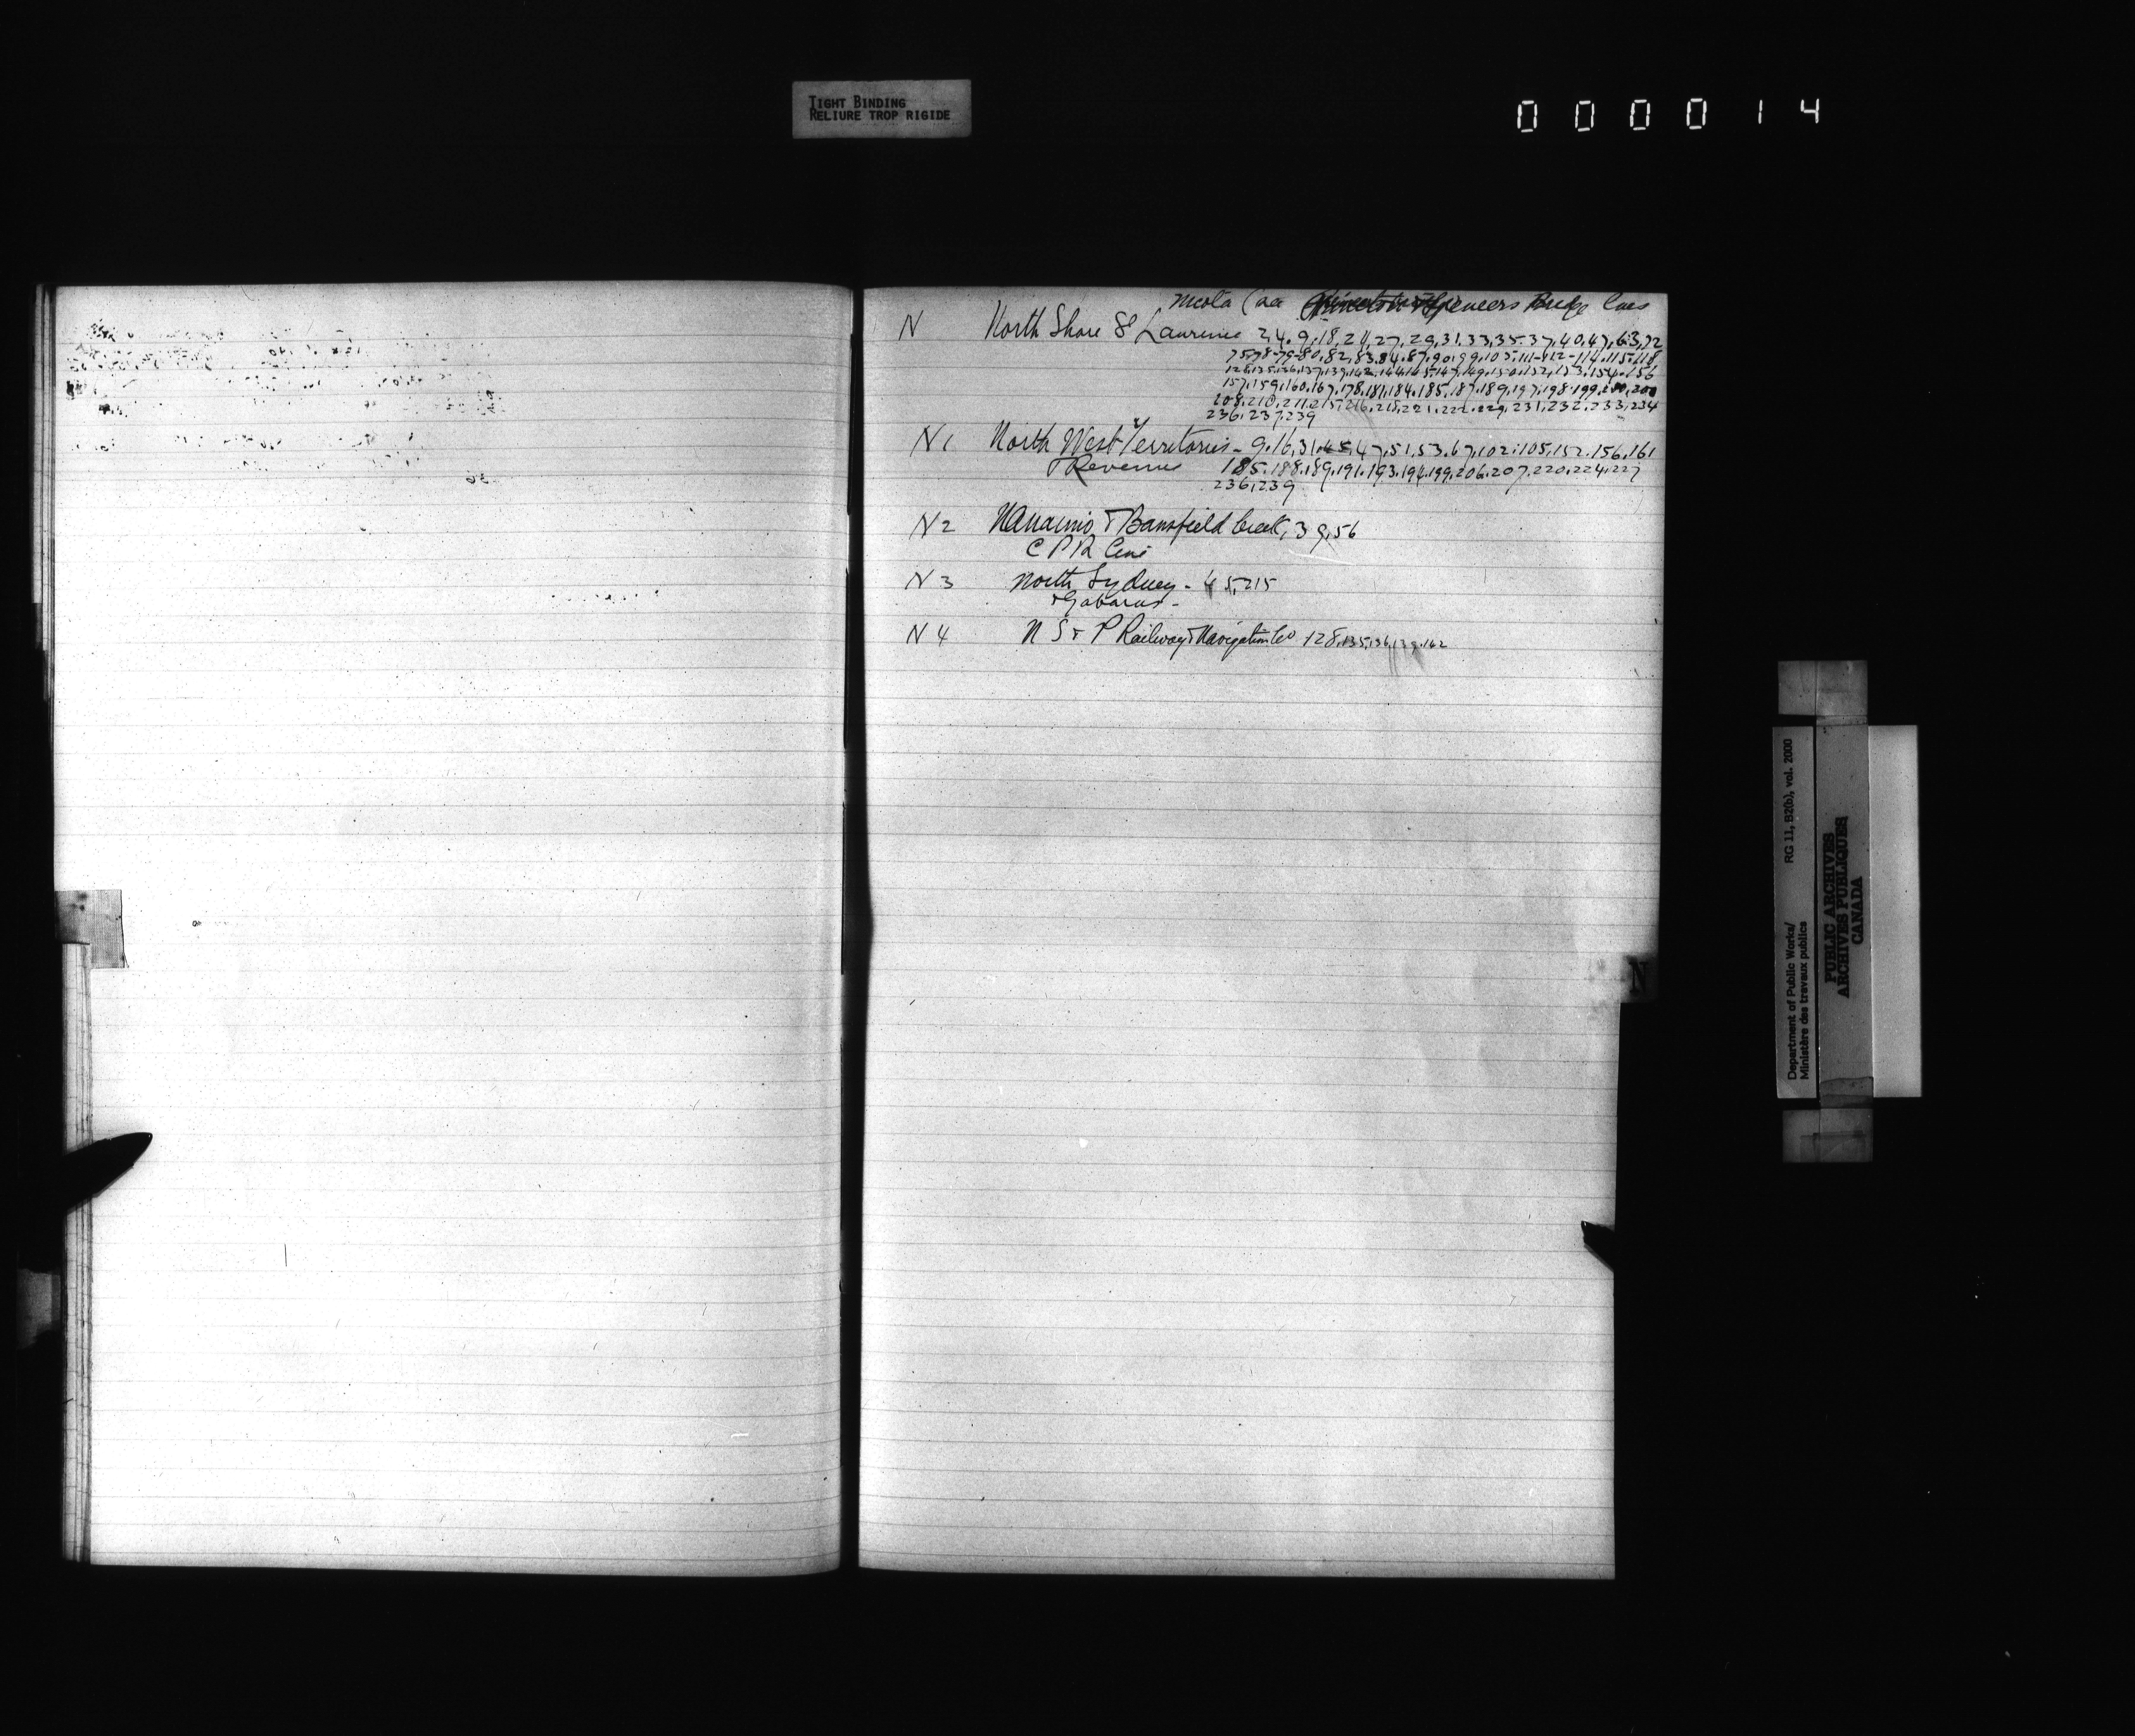 TIGHT BINDING
RELIURE TROP RIGIDE
000014
Nicola (see Spencers Bridge Lines
N North Shore St Laurence 2,4.9.18.21,27,29,31.33,35.37,40,47,63,72
75,78-79-80,82,83,84.87,90,99,103,111-112-114.115.118
157,159,160,167,178,181,184,185,187,189,197,198,199
208,210,211,215,216,218,221,222,229,231,232,233,234
236,237,239
N1 North West Territories - 9.16,31,45,47,51,53.67,102,105,152,156,161
& Revenue 185,188,189,191,193,194,199,206,207,220,224,227
236,239
N2 Nanaimo & Bamfield Creek, 39,56
C P R Line
N3 North Sydney - 45,215
& Gabarus -
N4 N S & P Railway & Navigation Co 128,135,136,139,162
N
Department of Public Works/
Ministère des travaux publics
RG 11, B2(b), vol. 2000
PUBLIC ARCHIVES
ARCHIVES PUBLIQUES
CANADA